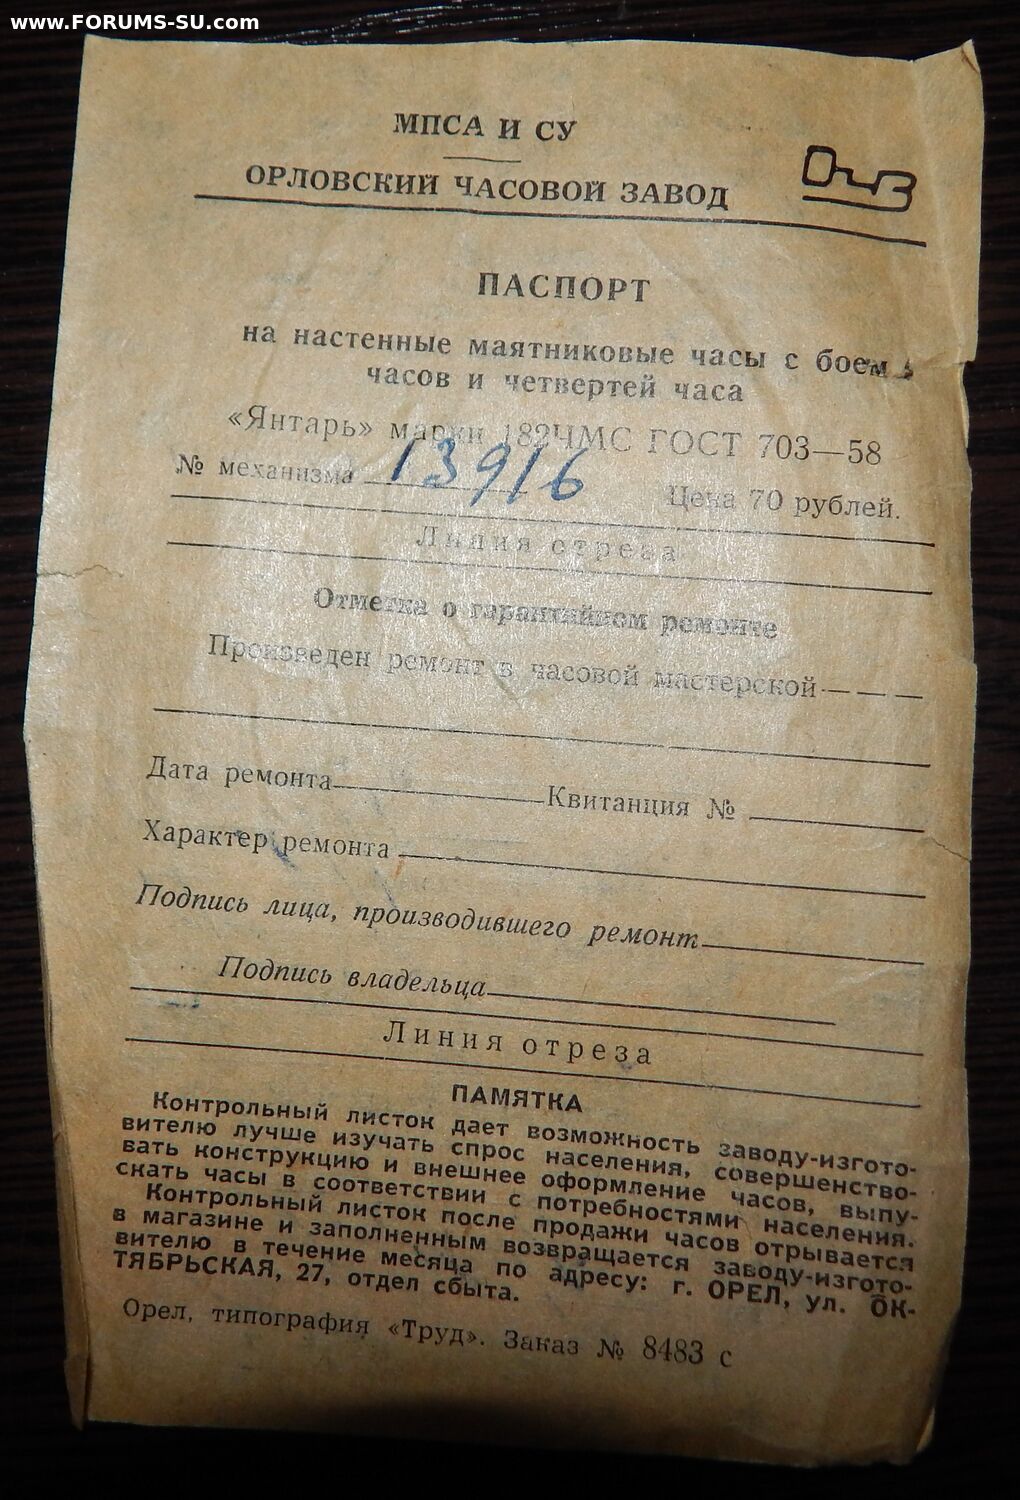 www.FORUMS-SU.com
МПСА И СУ
ОРЛОВСКИЙ ЧАСОВОЙ ЗАВОД
ОЧЗ
ПАСПОРТ
на настенные маятниковые часы с боем
часов и четвертей часа
«Янтарь» марки 182ЧМС ГОСТ 703—58
№ механизма 13916 Цена 70 рублей.
Линия отреза
Отметка о гарантийном ремонте
Произведен ремонт в часовой мастерской
Дата ремонта Квитанция №
Характер ремонта
Подпись лица, производившего ремонт
Подпись владельца
Линия отреза
ПАМЯТКА
Контрольный листок дает возможность заводу-изгото-
вителю лучше изучать спрос населения, совершенство-
вать конструкцию и внешнее оформление часов, выпу-
скать часы в соответствии с потребностями населения.
Контрольный листок после продажи часов отрывается
в магазине и заполненным возвращается заводу-изгото-
вителю в течение месяца по адресу: г. ОРЕЛ, ул. ОК-
ТЯБРЬСКАЯ, 27, отдел сбыта.
Орел, типография «Труд». Заказ № 8483 с